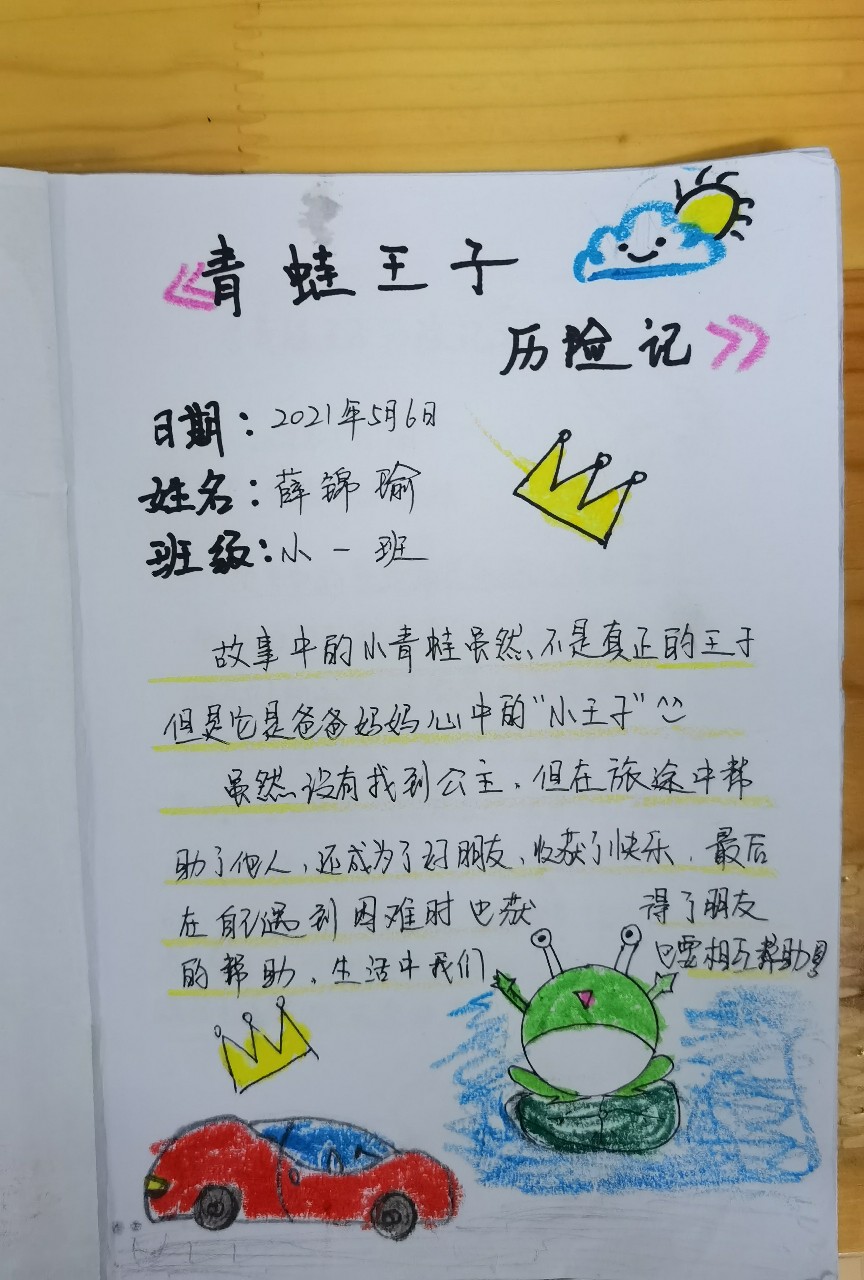 《青蛙王子
历险记》
日期：2021年5月6日
姓名：薛锦瑜
班级：小一班
故事中的小青蛙虽然、不是真正的王子
但是它是爸爸妈妈心中的“小王子”^^
虽然没有找到公主，但在旅途中帮
助了他人，还成为了好朋友、收获了快乐，最后
在自己遇到困难时也获得了朋友
的帮助，生活中我们也要相互帮助！